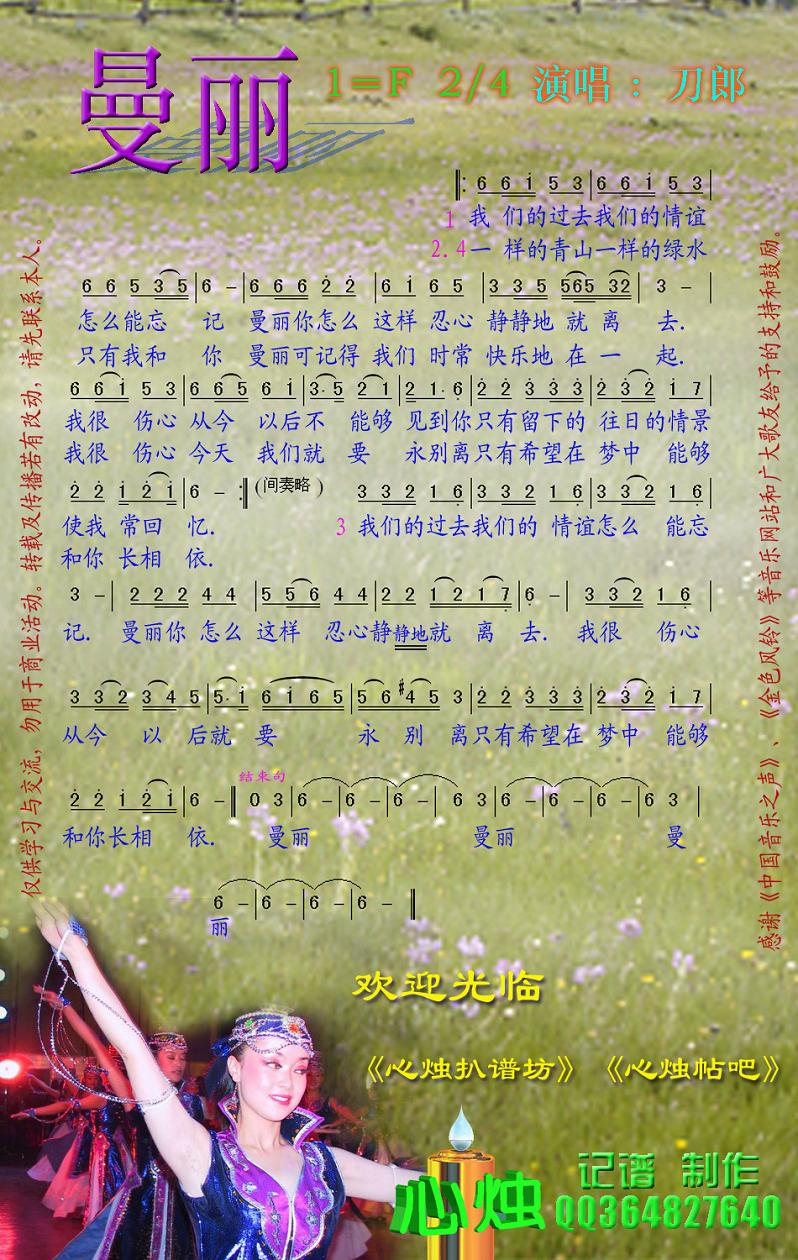 曼丽
1=F 2/4 演唱：刀郎
6 6 i 5 3 | 6 6 i 5 3 |
1 我 们的过去我们的情谊
2.4 一 样的青山一样的绿水
6 6 5 3 5 | 6 – | 6 6 6 2 2 | 6 i 6 5 | 3 3 5 565 32 | 3 – |
怎么能忘 记 曼丽你怎么 这样 忍心 静静地 就 离 去.
只有我和 你 曼丽可记得 我们 时常 快乐地 在 一 起.
6 6 i 5 3 | 6 6 5 6 i | 3· 5 2 1 | 2 1· 6 | 2 2 3 3 3 | 2 3 2 i 7 |
我很 伤心 从今 以后不 能够 见到你只有留下的 往日的情景
我很 伤心 今天 我们就 要 永别离只有希望在 梦中 能够
2 2 1 2 1 | 6 – :| (间奏略) 3 3 2 1 6 | 3 3 2 1 6 | 3 3 2 1 6 |
使我 常回 忆. 3 我们的过去我们的 情谊怎么 能忘
和你 长相 依.
3 – | 2 2 2 4 4 | 5 5 6 4 4 | 2 2 1 2 1 7 | 6 – | 3 3 2 1 6 |
记. 曼丽你 怎么 这样 忍心静静地就 离 去. 我很 伤心
3 3 2 3 4 5 | 5· i 6 i 6 5 | 5 6 #4 5 3 | 2 2 3 3 3 | 2 3 2 i 7 |
从今 以 后就 要 永 别 离只有希望在 梦中 能够
结束句
2 2 1 2 1 | 6 – || 0 3 | 6 – | 6 – | 6 – | 6 3 | 6 – | 6 – | 6 – | 6 3 |
和你长相 依. 曼丽 曼丽 曼
6 – | 6 – | 6 – | 6 – ||
丽
仅供学习与交流，勿用于商业活动。转载及传播若有改动，请先联系本人。
感谢《中国音乐之声》、《金色风铃》等音乐网站和广大歌友给予的支持和鼓励。
欢迎光临
《心烛扒谱坊》 《心烛帖吧》
心烛
记谱 制作
QQ364827640